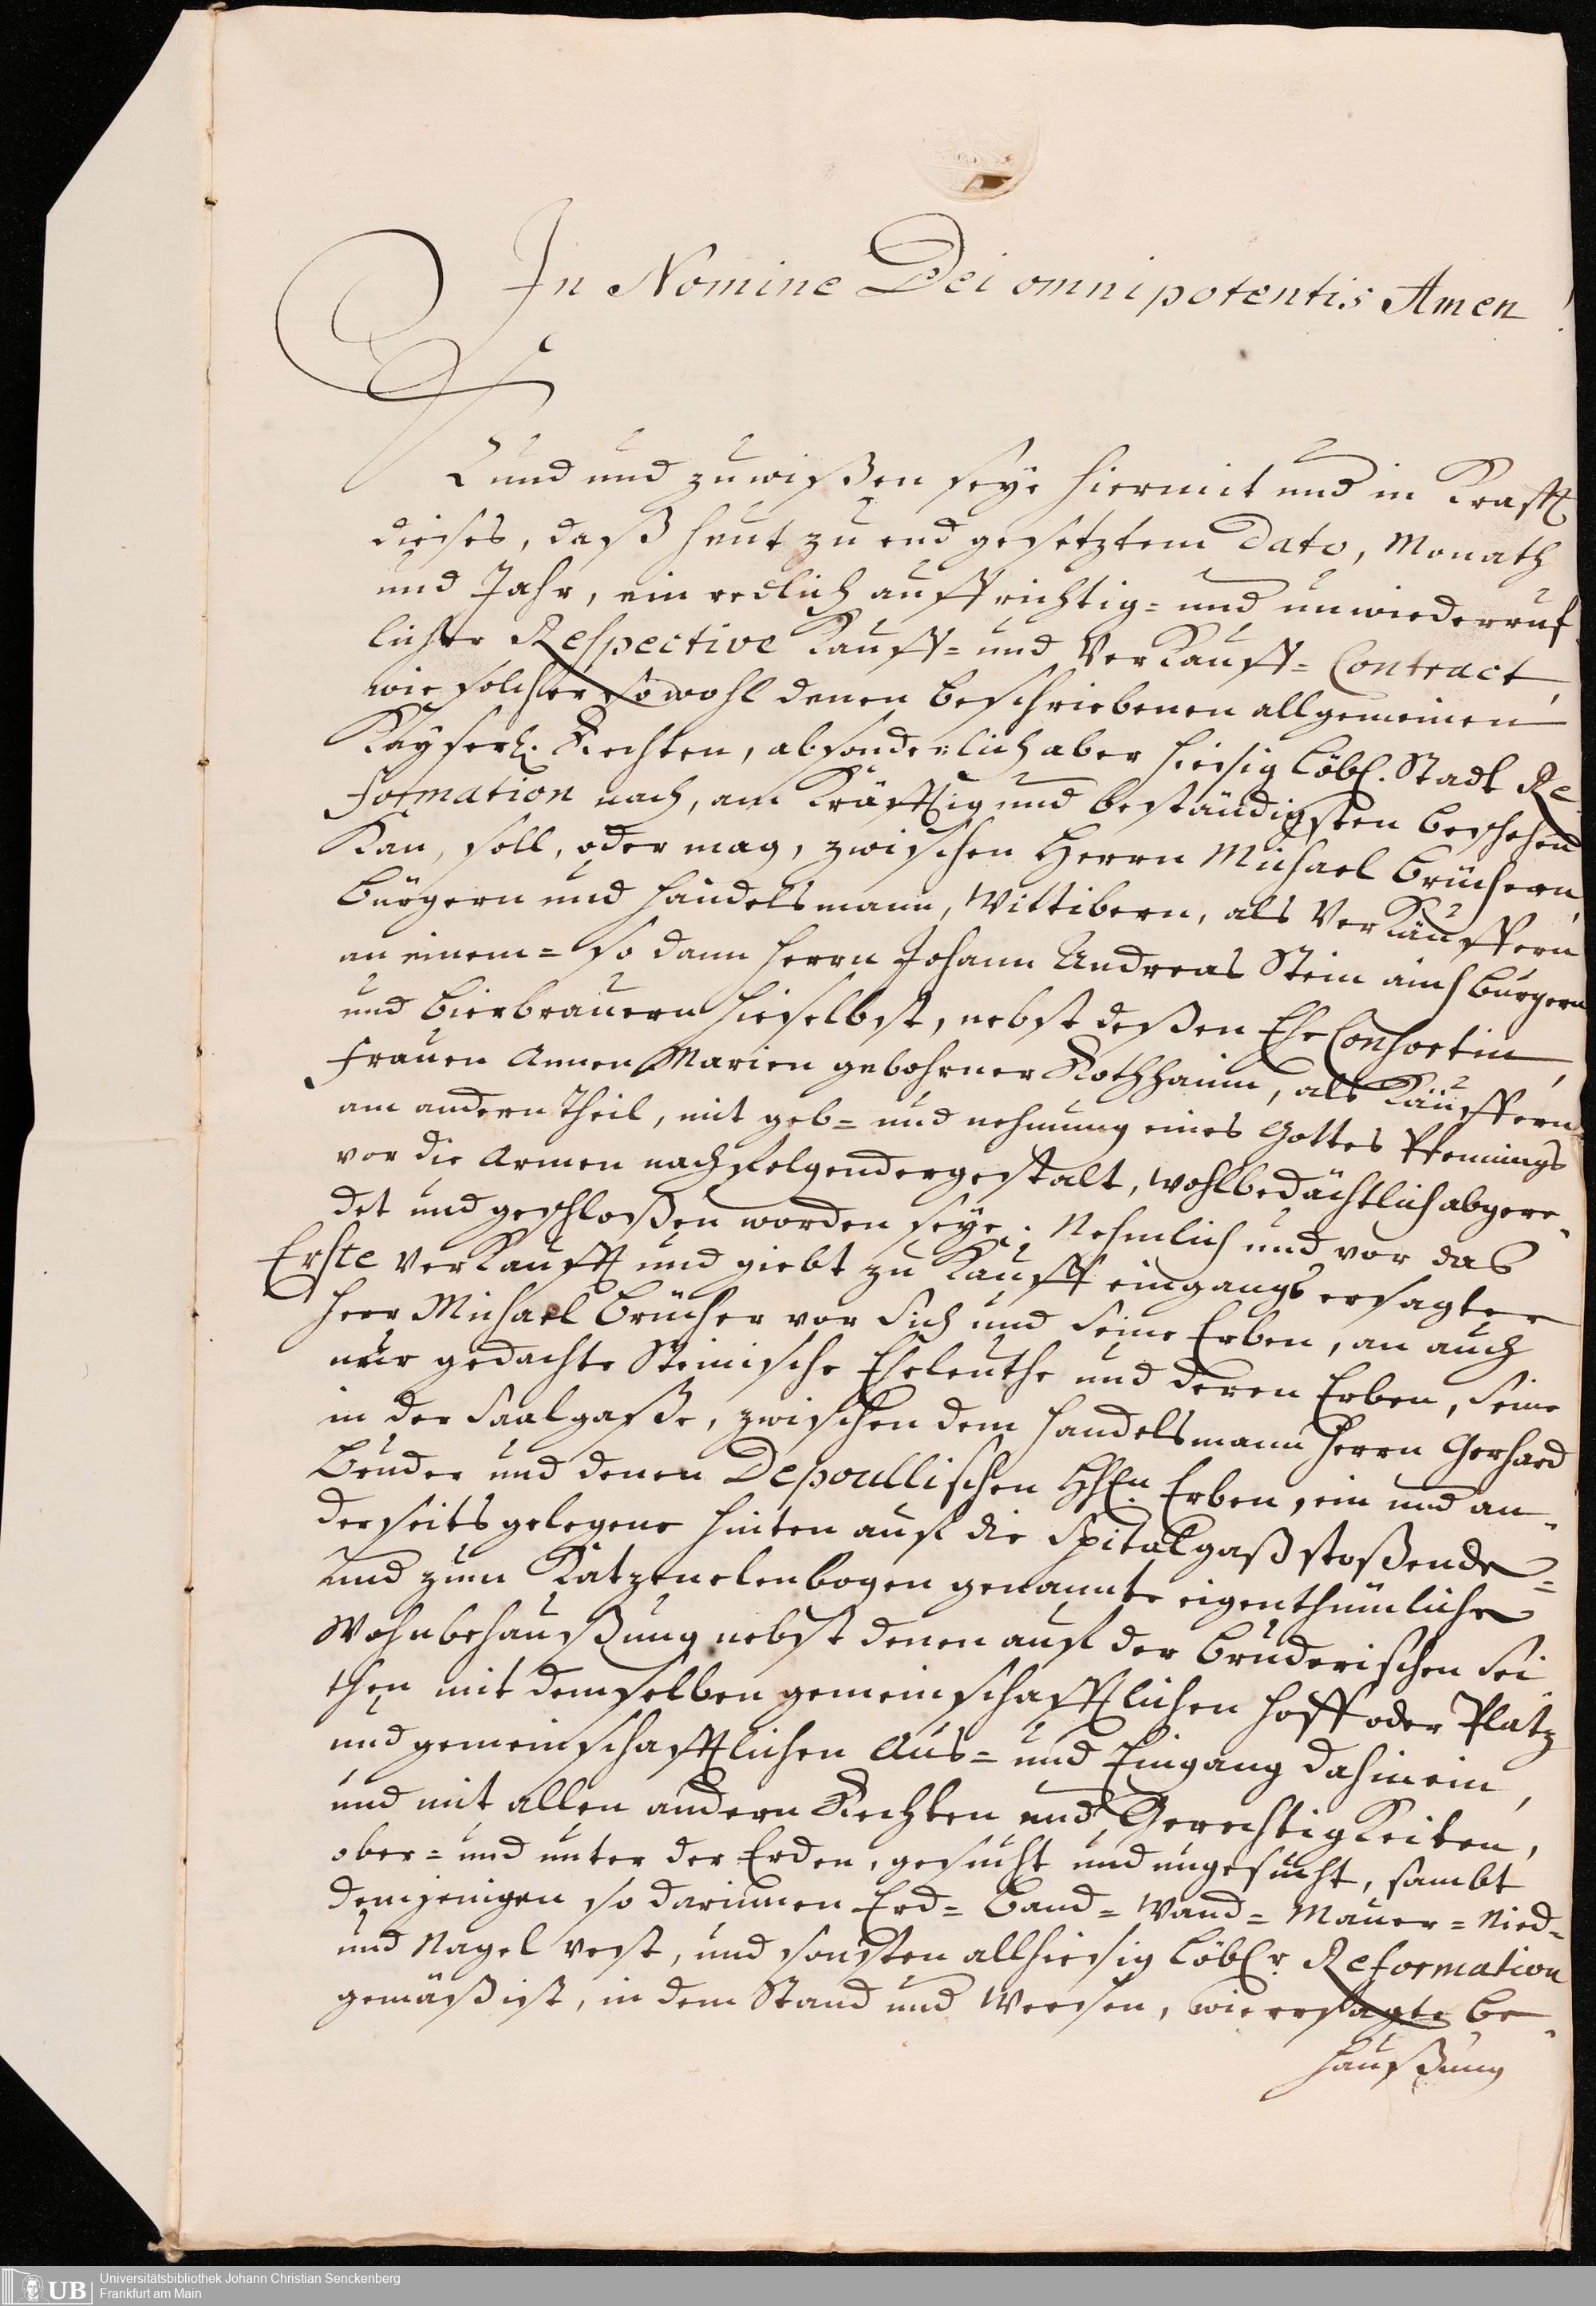 In Nomine Dei omnipotentis Amen!
Kund und zuwißen seye hiermit und in Krafft
dieses, daß heut zu end gesetztem Dato, Monath
und Jahr, ein redlich auffrichtig- und unwiederruf-
licher Respective Kauff- und VerKauff- Contract,
wie solcher sowohl denen beschriebenen allgemeinen
Kayserl. Rechten, absonderlich aber hiesig löbl. Stadt Re-
formation nach, am Kräfftig und beständigsten beschehen
Kan, soll, oder mag, zwischen Herrn Michael Brüchern,
Bürgern und Handelsmann, Wittibern, als VerKäuffern
an einem- so dann Herrn Johann Andreas Stein auch Burgern
und Bierbrauern hieselbst, nebst deßen EheConsortin,
Frauen Annen Marien gebohrner Rothhanin, als Käuffern
am andern Theil, mit geb- und nehmung eines Gottes Pfennings
vor die Armen nachfolgendergestalt, wohlbedächtlich abgere-
det und geschloßen worden seye. Nehmlich und vor das
Erste VerKaufft und giebt zu Kauff eingangs ersagter
Herr Michael Brücher vor sich und seine Erben, an auch
nur gedachte Steinische Eheleuthe und deren Erben, seine
in der Saalgaße, zwischen dem Handelsmann Herrn Gerhard
Bruder und denen Depoullischen HhEn. Erben, ein und an-
derseits gelegene hinten auf die Spitalgaß stoßende-
und zum Katzenelenbogen genannte eigenthümliche
Wohnbehaußung nebst denen auf der Bruderischen Sei-
then mit demselben gemeinschafftlichen Hoff oder Platz
und gemeinschafftlichen Aus- und Eingang dahinein,
und mit allen andern Rechten und GerechtigKeiten,
ober- und unter der Erden, gesucht und ungesucht, sambt
demjenigen so darinnen Erd- Band- Wand- Mauer- Nied-
und Nagel vest, und sonsten allhiesig löblr. Reformation
gemäß ist, in dem Stand und Weesen, wie ersagte Be-
haußung
UB
Universitätsbibliothek Johann Christian Senckenberg
Frankfurt am Main